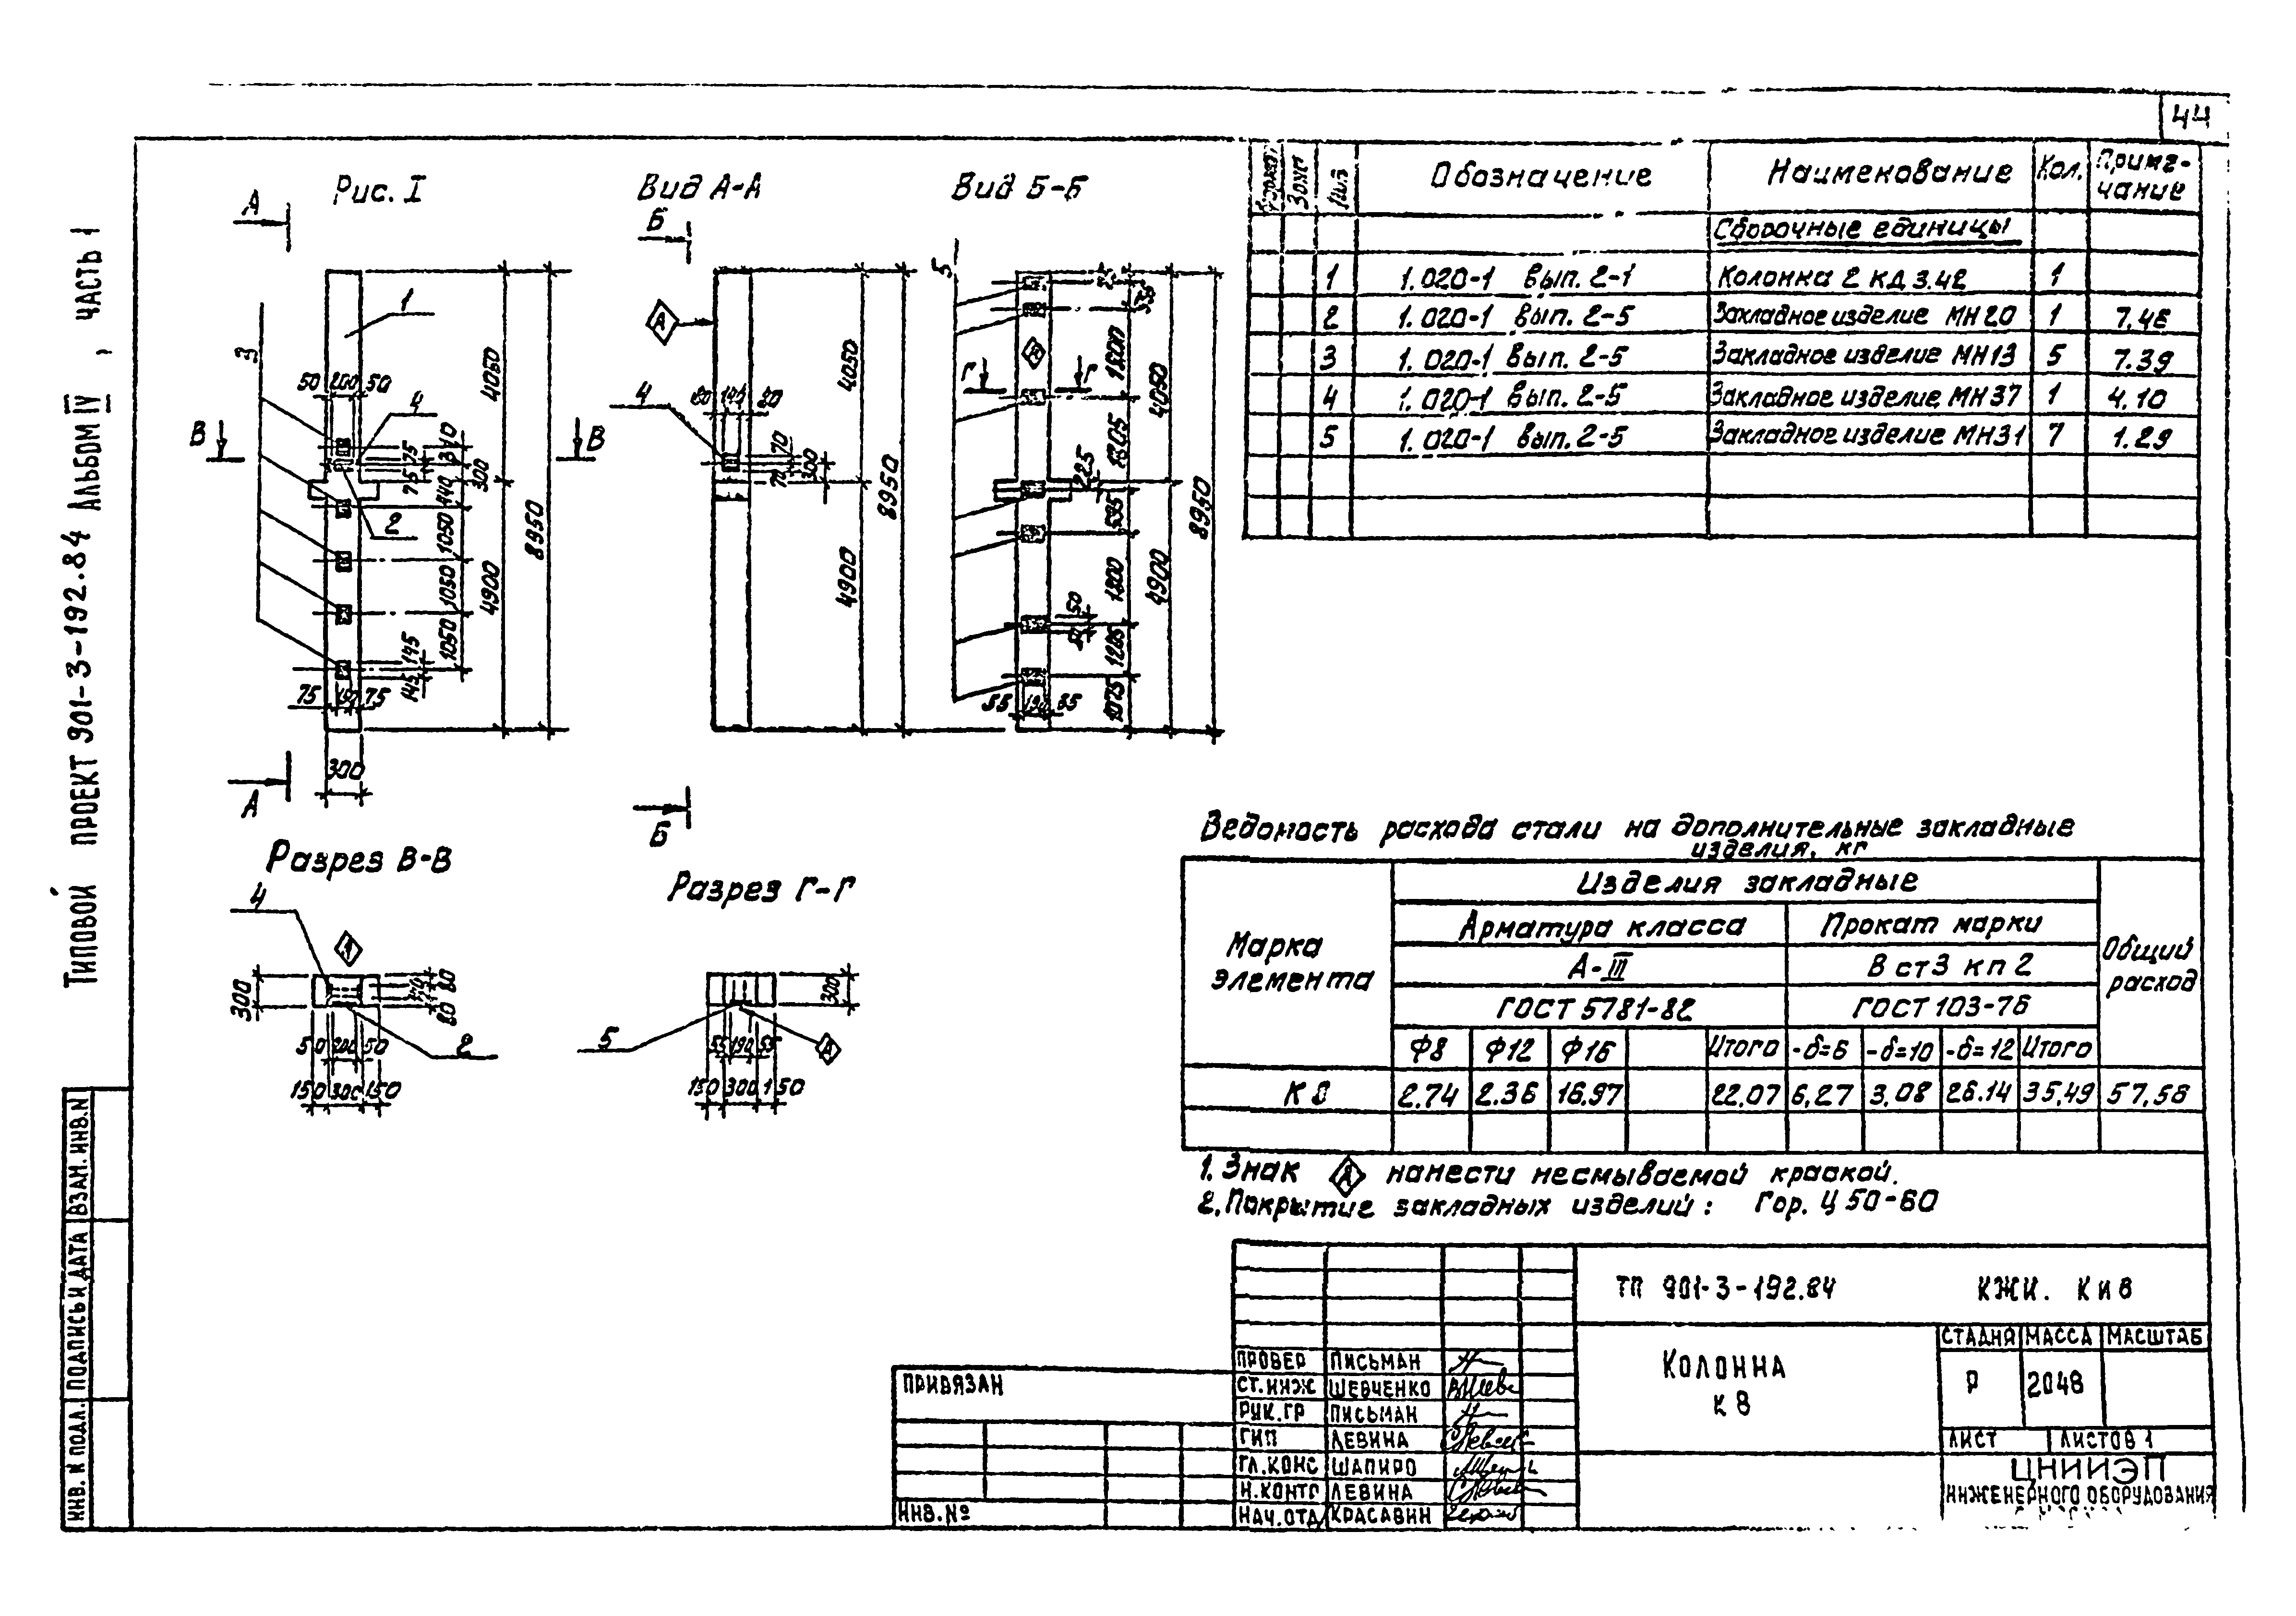 44
ТИПОВОЙ ПРОЕКТ 901-3-192.84 АЛЬБОМ IV, ЧАСТЬ 1
Рис. I
Вид А-А
Вид Б-Б
А
А
Б
Б
В
В
Г
Г
1
2
3
4
50 200 50
75
75
310
300
440
1050
1050
1050
145
145
75 150 75
4050
4900
8950
300
А
4
140
70
70
300
4050
4900
8950
5
1800
1305
225
595
1800
50
1285
1075
55 190 55
4050
4900
8950
Разрез В-В
4
2
300
80
80
50 200 50
150 300 150
Разрез Г-Г
5
А
300
55 190 55
150 300 150
Зона
Поз
Обозначение
Наименование
Кол.
Примечание
Сборочные единицы
1 1.020-1 вып. 2-1 Колонна 2 КД 3.42 1
2 1.020-1 вып. 2-5 Закладное изделие МН20 1 7.48
3 1.020-1 вып. 2-5 Закладное изделие МН13 5 7.39
4 1.020-1 вып. 2-5 Закладное изделие МН37 1 4.10
5 1.020-1 вып. 2-5 Закладное изделие МН31 7 1.29
Ведомость расхода стали на дополнительные закладные
изделия, кг
Марка элемента
Изделия закладные
Общий расход
Арматура класса
Прокат марки
А-III
В ст3 кп 2
ГОСТ 5781-82
ГОСТ 103-76
Ф8 Ф12 Ф16 Итого -δ=6 -δ=10 -δ=12 Итого
К8 2.74 2.36 16.97 22.07 6.27 3.08 26.14 35.49 57.56
1. Знак А нанести несмываемой краской.
2. Покрытие закладных изделий: Гор. Ц 50-60
ТП 901-3-192.84 КЖИ. К и 8
КОЛОННА
К 8
СТАДИЯ МАССА МАСШТАБ
Р 2048
ЛИСТ ЛИСТОВ 1
ЦНИИЭП
ИНЖЕНЕРНОГО ОБОРУДОВАНИЯ
ПРОВЕР ПИСЬМАН
СТ.ИНЖ ШЕВЧЕНКО
РУК.ГР ПИСЬМАН
ГИП ЛЕВИНА
ГЛ.КОНС ШАПИРО
Н.КОНТР ЛЕВИНА
НАЧ.ОТД КРАСАВИН
ПРИВЯЗАН
ИНВ.№
ИНВ. N ПОДЛ. ПОДПИСЬ И ДАТА ВЗАМ. ИНВ.N